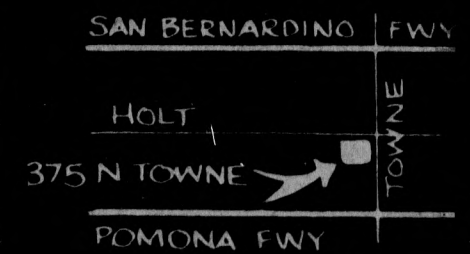 SAN BERNARDINO FWY
HOLT
TOWNE
375 N TOWNE
POMONA FWY